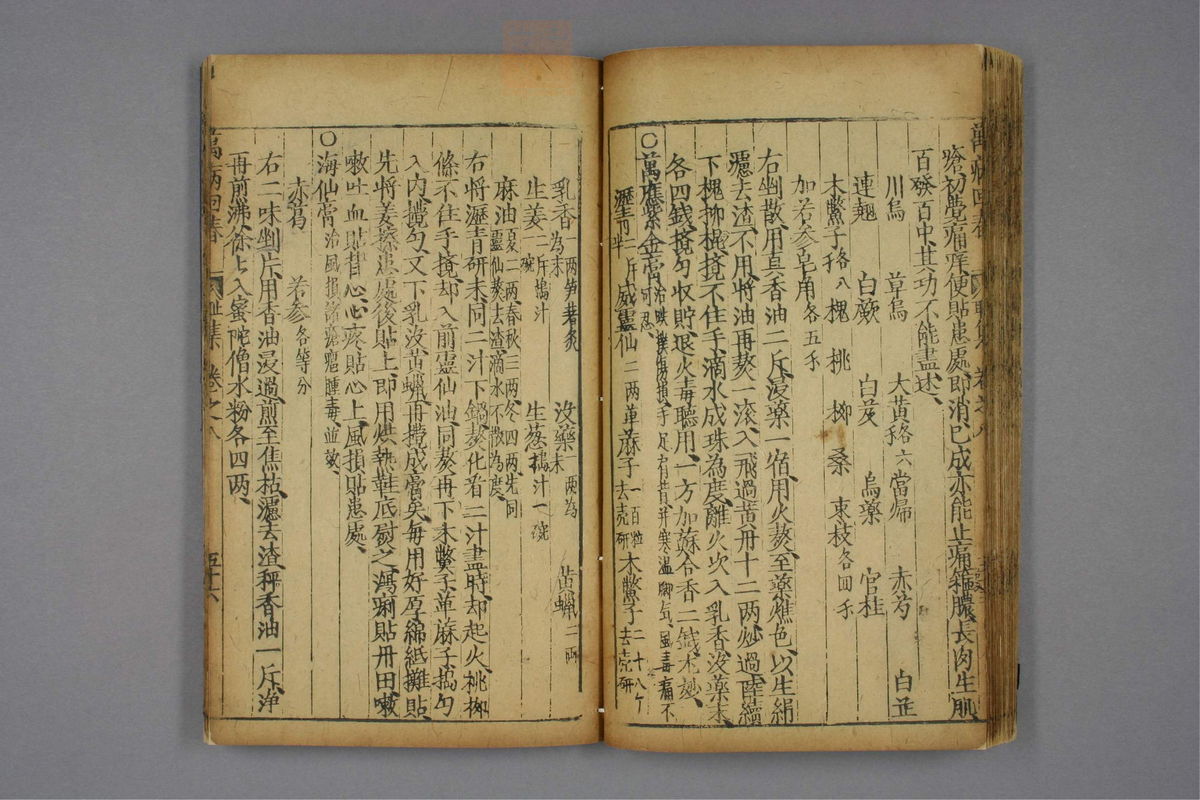 瘡初覺痛痒便貼患處即消已成亦能止痛箍膿長肉生肌
百發百中其功不能盡述
川烏 草烏 大黃各六 當歸 赤芍 白芷
連翹 白蘞 白芨 烏藥 官桂
木鱉子各八 槐 桃 柳 桑 東枝各四
加苦參皂角各五
右剉散用真香油二斤浸藥一宿用火熬至藥燋色以生絹
濾去渣不用將油再熬一滾入飛過黃丹十二兩炒過陸續
下槐柳棍攪不住手滴水成珠為度離火次入乳香沒藥末
各四錢攪勻收貯退火毒聽用一方加蘇合香二錢尤妙
○萬應紫金膏治跌撲傷損手足肩背并寒濕脚氣風毒痛不可忍
瀝青二斤半 威靈仙二兩 蓖麻子一百粒去殼研 木鱉子二十八个去殼研
萬病回春 卷之八
乳香為末二兩笋箬炙 沒藥一兩為末 黃蠟二兩
生姜二斤搗汁一碗 生葱搗汁一碗
麻油夏二兩春秋三兩冬四兩先同靈仙熬去渣滴水不散為度
右將瀝青研末同二汁下鍋熬化看二汁盡時却起火桃柳
條不住手攪却入前靈仙油同熬再下木鱉子蓖麻子搗勻
入內攪勻又下乳沒黃蠟再攪成膏矣每用好厚綿紙攤貼
先將姜擦患處後貼上即用烘熱鞋底熨之瀉痢貼丹田嗽
嗽吐血貼背心心疼貼心上風損貼患處
○海仙膏治風損諸瘡癰腫毒並效
赤葛 苦參各等分
右二味剉片用香油浸過煎至焦枯濾去渣秤香油一斤淨
再煎沸徐徐入蜜陀僧水粉各四兩
萬病回春 卷之八 五十六